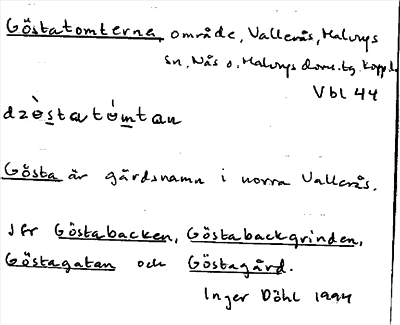 Göstatomterna, område, Vallerås, Malungs
sn, Nås o. Malungs doms.tg, Kopp. l.
Vbl 44
dzø̀statómtan
Gösta är gårdsnamn i norra Vallerås.
Jfr Göstabacken, Göstabackgrinden,
Göstagatan och Göstagård.
Inger Döhl 1994